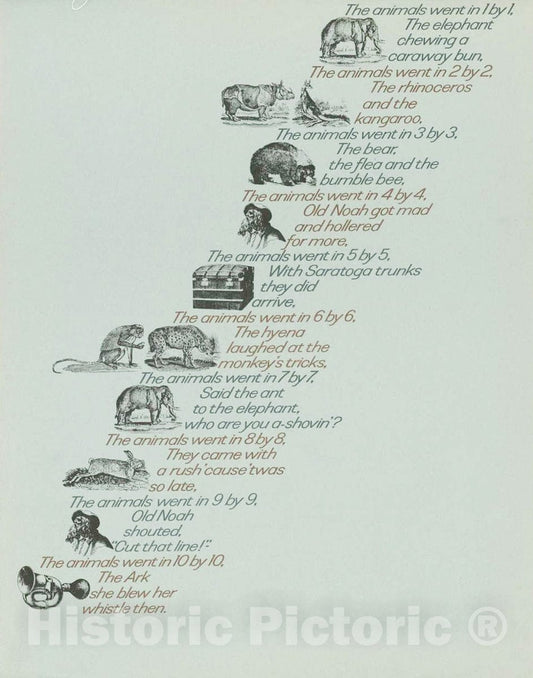 The animals went in 1 by 1,
The elephant
chewing a
caraway bun,
The animals went in 2 by 2,
The rhinoceros
and the
kangaroo,
The animals went in 3 by 3,
The bear,
the flea and the
bumble bee,
The animals went in 4 by 4,
Old Noah got mad
and hollered
for more,
The animals went in 5 by 5,
With Saratoga trunks
they did
arrive,
The animals went in 6 by 6,
The hyena
laughed at the
monkey's tricks,
The animals went in 7 by 7,
Said the ant
to the elephant,
who are you a-shovin'?
The animals went in 8 by 8,
They came with
a rush 'cause 'twas
so late,
The animals went in 9 by 9,
Old Noah
shouted,
"Cut that line!"
The animals went in 10 by 10,
The Ark
she blew her
whistle then.
Historic Pictoric ®